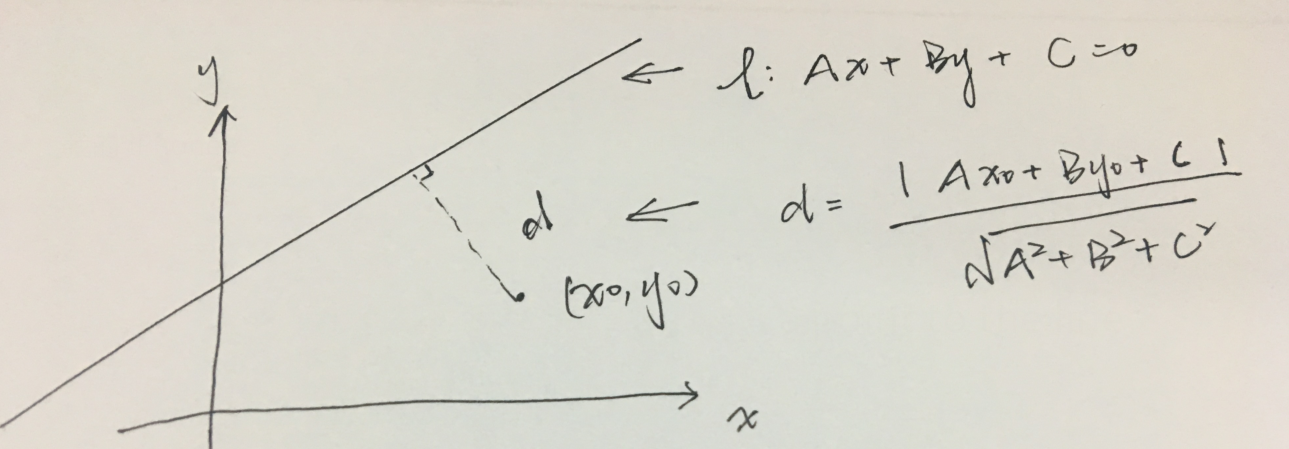 y
← l: Ax + By + C = 0
d ← d = | Ax₀ + By₀ + C | / √A² + B² + C²
(x₀, y₀)
x